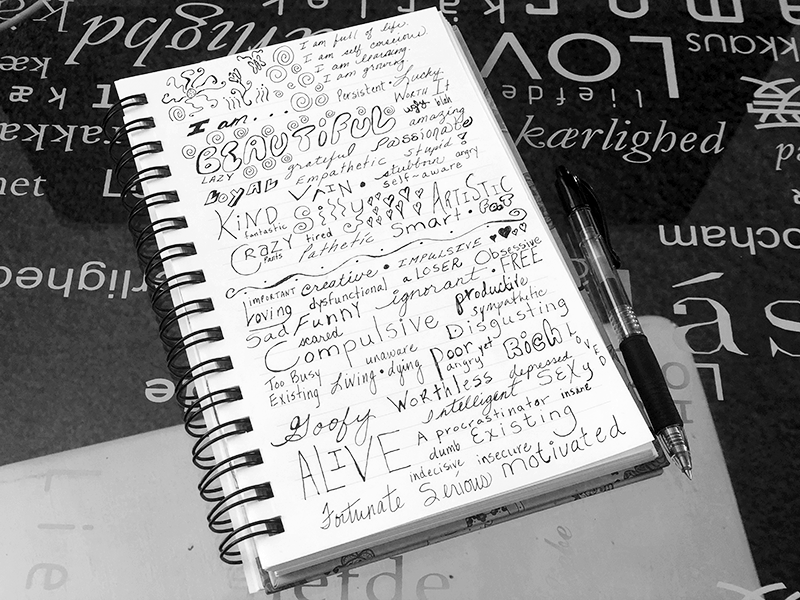 I am full of life.
I am self conscious.
I am learning.
I am growing.
Persistent • Lucky
I am... Worth It
ugly blah
BEAUTIFUL amazing
LAZY grateful Passionate
LOYAL Empathetic stupid?
VAIN • stubborn angry
self-aware
KIND Silly ARTISTIC
fantastic
CRAZY tired Pathetic Smart • Poet
Pants
important creative • IMPULSIVE Obsessive
Loving dysfunctional a LOSER FREE
Sad Funny ignorant • productive
scared sympathetic
Compulsive Disgusting
Too Busy unaware poor yet Rich LOVED
Existing Living • dying angry
Goofy worthless depressed SEXY
Intelligent insane
ALIVE A procrastinator
dumb Existing
indecisive insecure motivated
Fortunate Serious
kærlighed
LOV
kaus
liefde
kærlighed
爱
met
L
ærlighed
mocham
ás
e
lie
be
iefde